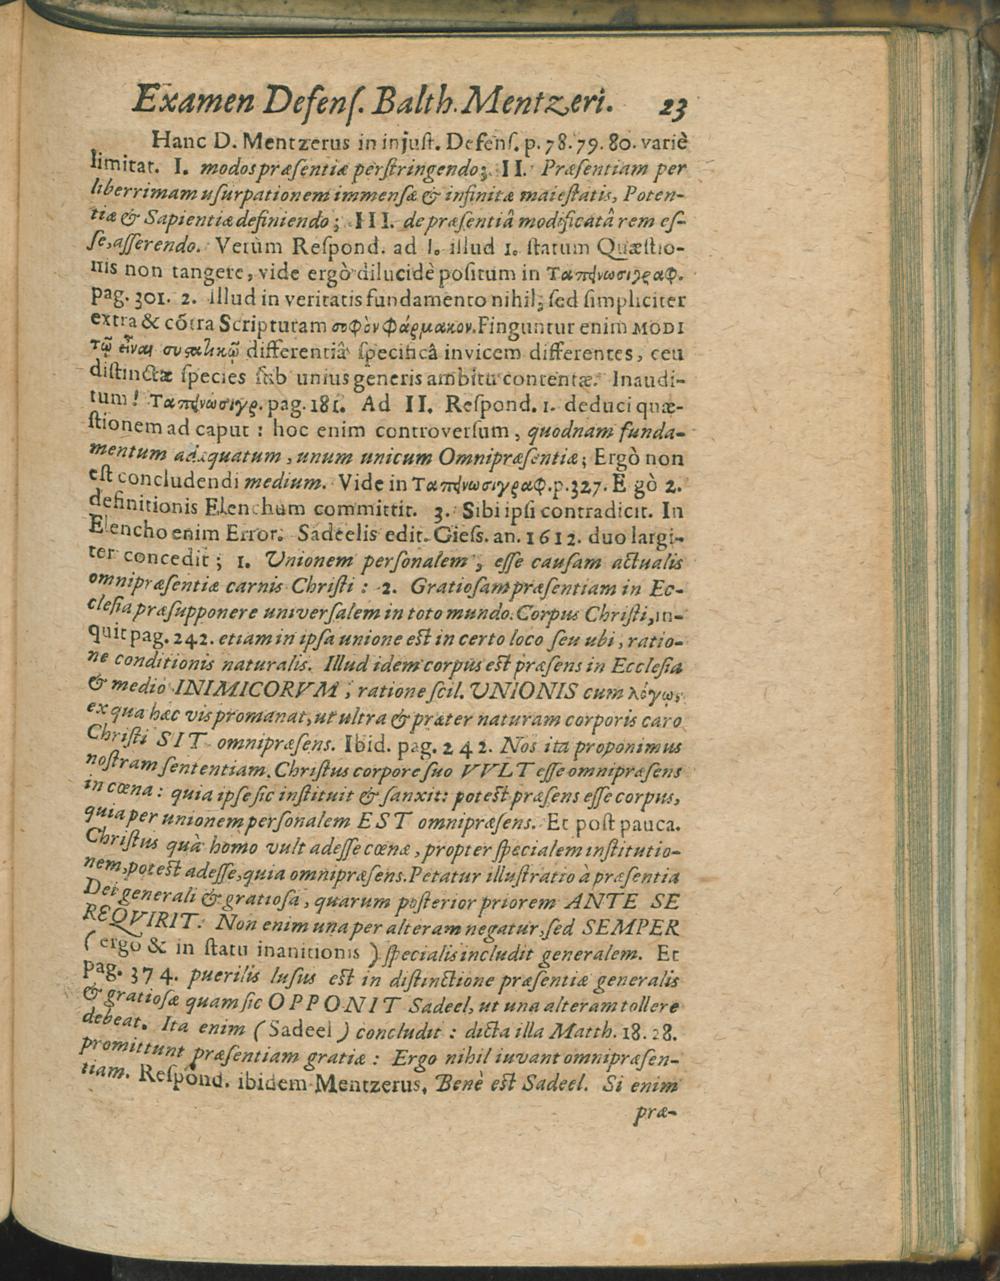 Examen Defenſ. Balth. Mentzeri. 23
Hanc D. Mentzerus in injuſt. Defenſ. p. 78. 79. 80. variè
limitat. I. modos præſentiæ perſtringendo; II. Præſentiam per
liberrimam uſurpationem immenſæ & infinitæ maieſtatis, Poten-
tiæ & Sapientiæ definiendo; III. de præſentiâ modificatâ rem eſ-
ſe, aſſerendo. Verùm Reſpond. ad I. illud 1. ſtatum Quæſtio-
nis non tangere, vide ergò dilucidè poſitum in Ταπεινωσιγραφ.
pag. 301. 2. illud in veritatis fundamento nihil; ſed ſimpliciter
extra & cõtra Scripturam σοφὸν φάρμακον. Finguntur enim MODI
τῷ εἶναι συστατικῷ differentiâ ſpecificâ invicem differentes, ceu
diſtinctæ ſpecies ſub unius generis ambitu contentæ. Inaudi-
tum! Ταπεινωσιγρ. pag. 181. Ad II. Reſpond. 1. deduci quæ-
ſtionem ad caput: hoc enim controverſum, quodnam funda-
mentum adæquatum, unum unicum Omnipræſentiæ; Ergò non
eſt concludendi medium. Vide in Ταπεινωσιγραφ. p. 327. E gò 2.
definitionis Elenchum committit. 3. Sibi ipſi contradicit. In
Elencho enim Error. Sadeelis edit. Gieſs. an. 1612. duo largi-
ter concedit; 1. Unionem perſonalem, eſſe cauſam actualis
omnipræſentiæ carnis Chriſti: 2. Gratioſam præſentiam in Ec-
cleſia præſupponere univerſalem in toto mundo. Corpus Chriſti, in-
quit pag. 242. etiam in ipſa unione eſt in certo loco ſeu ubi, ratio-
ne conditionis naturalis. Illud idem corpus eſt præſens in Eccleſia
& medio INIMICORVM, ratione ſcil. UNIONIS cum λόγῳ,
ex qua hæc vis promanat, ut ultra & præter naturam corporis caro
Chriſti SIT omnipræſens. Ibid. pag. 242. Nos ita proponimus
noſtram ſententiam. Chriſtus corpore ſuo VVLT eſſe omnipræſens
in cœna: quia ipſe ſic inſtituit & ſanxit: poteſt præſens eſſe corpus,
quia per unionem perſonalem EST omnipræſens. Et poſt pauca.
Chriſtus quà homo vult adeſſe cœnæ, propter ſpecialem inſtitutio-
nem, poteſt adeſſe, quia omnipræſens. Petatur illuſtratio à præſentia
Dei generali & gratioſa, quarum poſterior priorem ANTE SE
REQVIRIT. Non enim una per alteram negatur, ſed SEMPER
(ergò & in ſtatu inanitionis) ſpecialis includit generalem. Et
pag. 374. puerilis luſus eſt in diſtinctione præſentiæ generalis
& gratioſæ quam ſic OPPONIT Sadeel, ut una alteram tollere
debeat. Ita enim (Sadeel) concludit: dicta illa Matth. 18. 28.
promittunt præſentiam gratiæ: Ergo nihil iuvant omnipræſen-
tiam. Reſpond. ibidem Mentzerus, Benè eſt Sadeel. Si enim
præ-